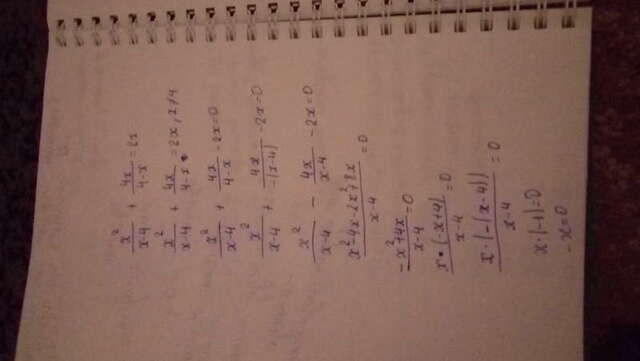 x²/(x-4) + 4x/(4-x) = 2x
x²/(x-4) + 4x/(4-x) = 2x, x≠4
x²/(x-4) + 4x/(4-x) - 2x = 0
x²/(x-4) + 4x/(-(x-4)) - 2x = 0
x²/(x-4) - 4x/(x-4) - 2x = 0
(x²-4x-2x²+8x)/(x-4) = 0
(-x²+4x)/(x-4) = 0
x·(-x+4)/(x-4) = 0
x·(-(x-4))/(x-4) = 0
x·(-1) = 0
-x = 0